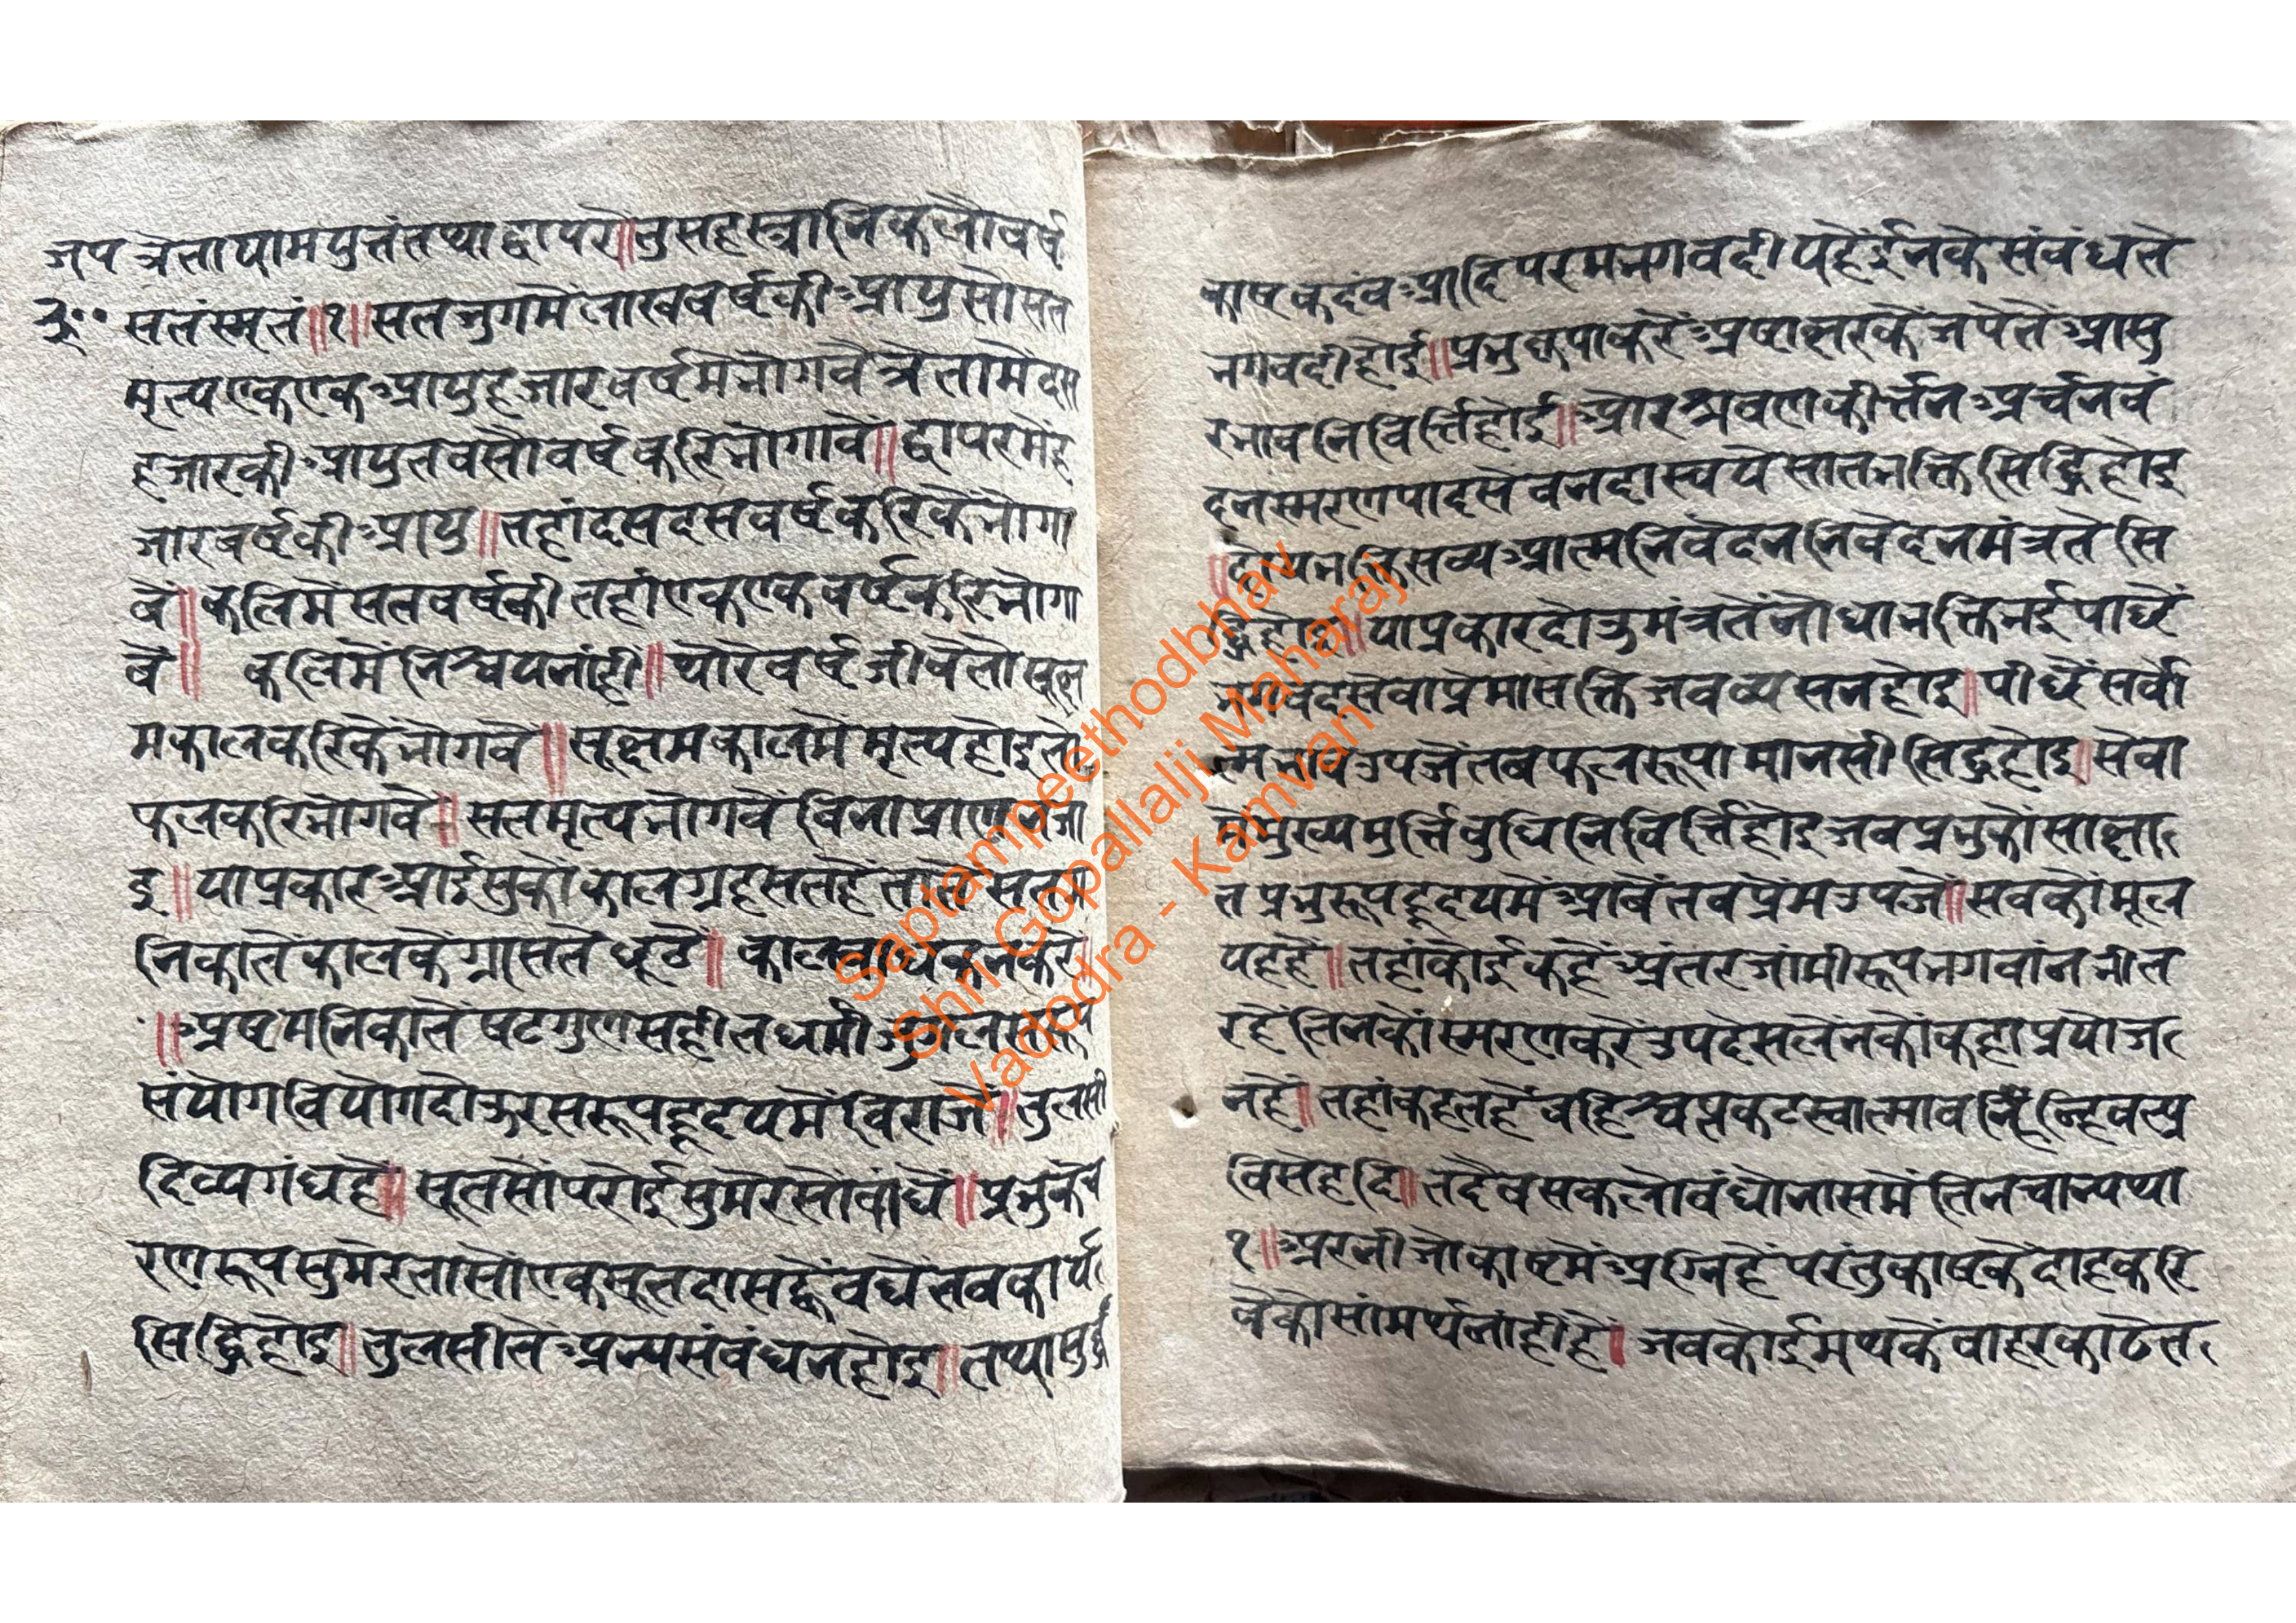 जप त्रेतायामयुतंतथाद्वापरे॥तुसहस्त्रानिकलौवर्ष
सतंस्मृतं॥१॥सतजुगमेंलाखवर्षकीआयुसोसत
मृत्यएकएकआयुहजारवर्षमेभोगवैत्रेतामेदस
हजारकीआयुतवसौवर्षकरिभोगावें॥द्वापरमेंह
जारवर्षकीआयु॥तहांदसदसवर्षकरिकेंभोगा
वें॥कलिमेंसतवर्षकीतहांएकएकवर्षकरिभोगा
वें॥ कलिमेंनिश्चयनांही॥थोरेवर्षजीवेतोसूक्ष
मकालकरिकेंभोगवे॥सूक्ष्मकालमेंमृत्यहोइतो
फलकरिभोगवें॥सतमृत्यभोगवेंविनाप्राण जा
इ॥याप्रकारआईसुकोंकालग्रहसतहें
निकातेंकालकेंग्रासतेंछूटे॥
॥अष्टमनिकातेंषटगुणसहीतधर्मी
संयोगवियोगदोऊरसरूपहृदयमेंविराजें॥तुलसी
दिव्यगंधहै॥सूतसोंपरोईसुमेरसोंवांधें॥प्रभुकेच
रणरूपसुमेरतासोंएकसूतदासह्वेंवधेंतवकार्य
सिद्धिहोइ॥तुलसीतेंअन्यसंवंधनहोइ॥तथा
काष्टकदंवआदिपरमभगवदीयहेंईनकेसंवंधतें
भगवदीहोई॥प्रभुकृपाकरेंअष्टाक्षरकेंजपेतेंआसु
रभावनिविर्त्तिहोई॥औरश्रवणकीर्त्तनअर्चनवं
दनस्मरणपादसेवनदास्वयेसातभक्तिसिद्धिहोइ
॥दोयभक्तिसख्यआत्मनिवेदननिवेदनमंत्रतेंसि
द्धिहोइ॥याप्रकारदोऊमंत्रतेंनोधाभक्तिभईपाछें
भगवदसेवाप्रेमासक्तिजवव्यसनहोइ॥पीछेंसर्वा
त्मभावउपजेंतबफलरूपामानसीसिद्धहोइ॥सेवा
मेंमुख्यमुर्त्तिवुधिनिविर्त्तिहोइजवप्रभुकोंसाक्षा
तप्रभुरूपहृदयमेंआवेंतवप्रेंमउपजें॥सवकोंमूल
यहहें॥तहांकोईकहेंअंतरजांमीरूपभगवांनभीत
रहेंतिनकोंस्मरणकरेंउपदेसलेंनकोंकहाप्रयोज
नहें॥तहांकहतहेंवहिश्चप्रकटस्वात्मावन्हिवत्प्र
विसेहदि॥तदैवसकलोवंधोनासमेंतिनचान्यथा
१॥अरनीजोकाष्टमेंअग्निहेंपरंतुकाष्टकेंदाहकरि
वेकोसांमर्थनांहींहें॥जवकोईमथकेंवाहरकाढेत